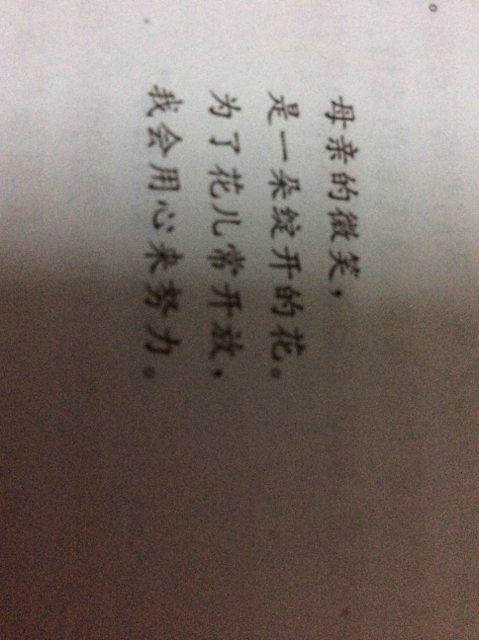 母亲的微笑，
是一朵绽开的花。
为了花儿常开放，
我会用心来努力。